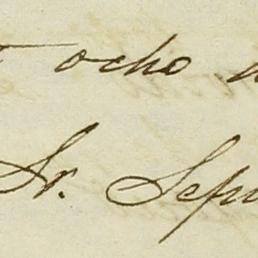 ocho
Sr. Sepu